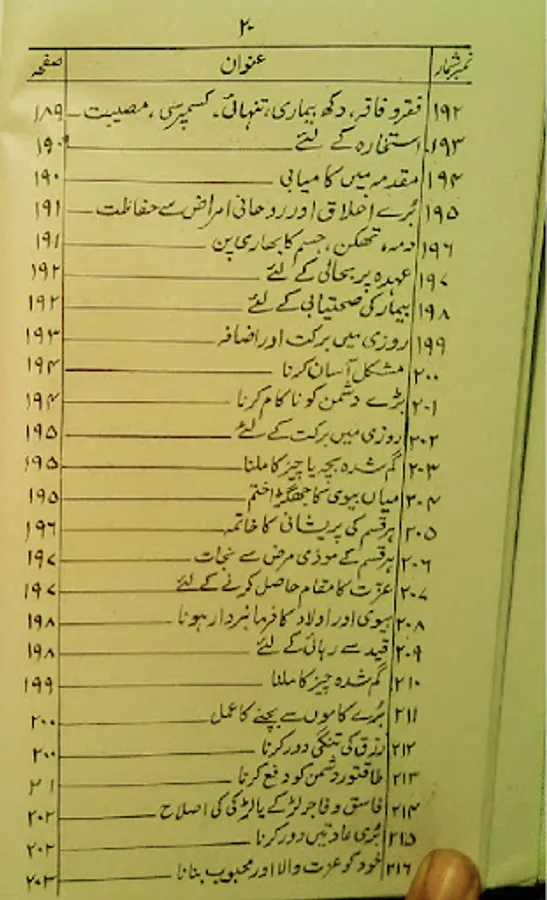 ۲۰
نمبر شمار عنوان صفحہ
۱۹۲ فقر و فاقہ، دکھ بیماری، تنہائی۔ کسمپرسی، مصیبت ۱۸۹
۱۹۳ استخارہ کے لئے ۱۹۰
۱۹۴ مقدمہ میں کامیابی ۱۹۰
۱۹۵ بُرے اخلاق اور روحانی امراض سے حفاظت ۱۹۱
۱۹۶ دمہ، تھکن، جسم کا بھاری پن ۱۹۱
۱۹۷ عہدہ پر بحالی کے لئے ۱۹۲
۱۹۸ بیمار کی صحتیابی کے لئے ۱۹۲
۱۹۹ روزی میں برکت اور اضافہ ۱۹۳
۲۰۰ مشکل آسان کرنا ۱۹۴
۲۰۱ بڑے دشمن کو ناکام کرنا ۱۹۴
۲۰۲ روزی میں برکت کے لئے ۱۹۵
۲۰۳ گم شدہ بچہ یا چیز کا ملنا ۱۹۵
۲۰۴ میاں بیوی کا جھگڑا ختم ۱۹۵
۲۰۵ ہر قسم کی پریشانی کا خاتمہ ۱۹۶
۲۰۶ ہر قسم کے موذی مرض سے نجات ۱۹۷
۲۰۷ عزت کا مقام حاصل کرنے کے لئے ۱۹۷
۲۰۸ بیوی اور اولاد کا فرمانبردار ہونا ۱۹۸
۲۰۹ قید سے رہائی کے لئے ۱۹۸
۲۱۰ گم شدہ چیز کا ملنا ۱۹۹
۲۱۱ بُرے کاموں سے بچنے کا عمل ۲۰۰
۲۱۲ رزق کی تنگی دور کرنا ۲۰۰
۲۱۳ طاقتور دشمن کو دفع کرنا ۲۰۱
۲۱۴ فاسق و فاجر لڑکے یا لڑکی کی اصلاح ۲۰۲
۲۱۵ بُری عادتیں دور کرنا ۲۰۲
۲۱۶ خود کو عزت والا اور محبوب بنانا ۲۰۳